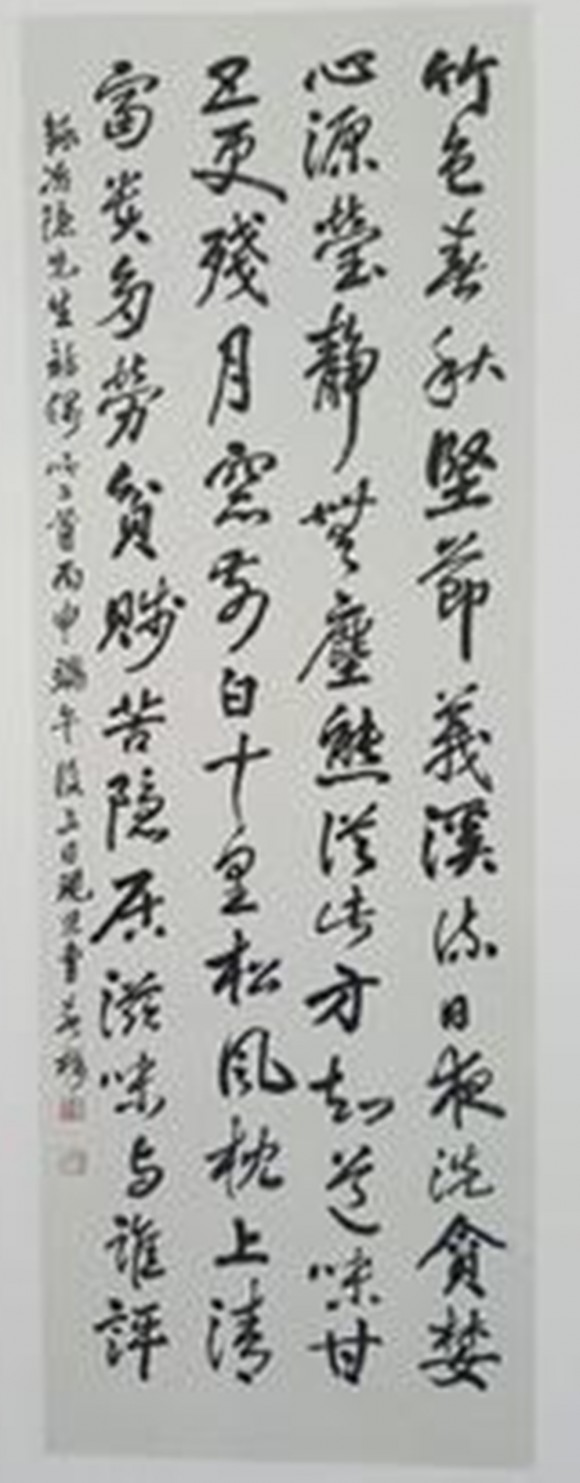 竹色春秋堅節義溪流日夜洗貪婪
心源瑩靜無塵態從此方知道味甘
五更殘月窗前白十里松風枕上清
富貴多勞貧賤苦隱居滋味与誰評
錄隱先生二首丙申端午後日書